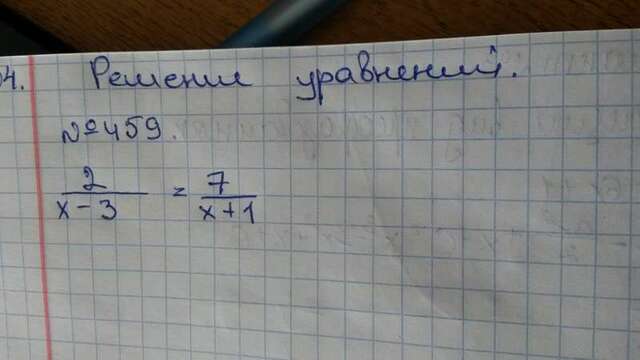 04.
Решение уравнений.
№459.
2/(x-3) = 7/(x+1)